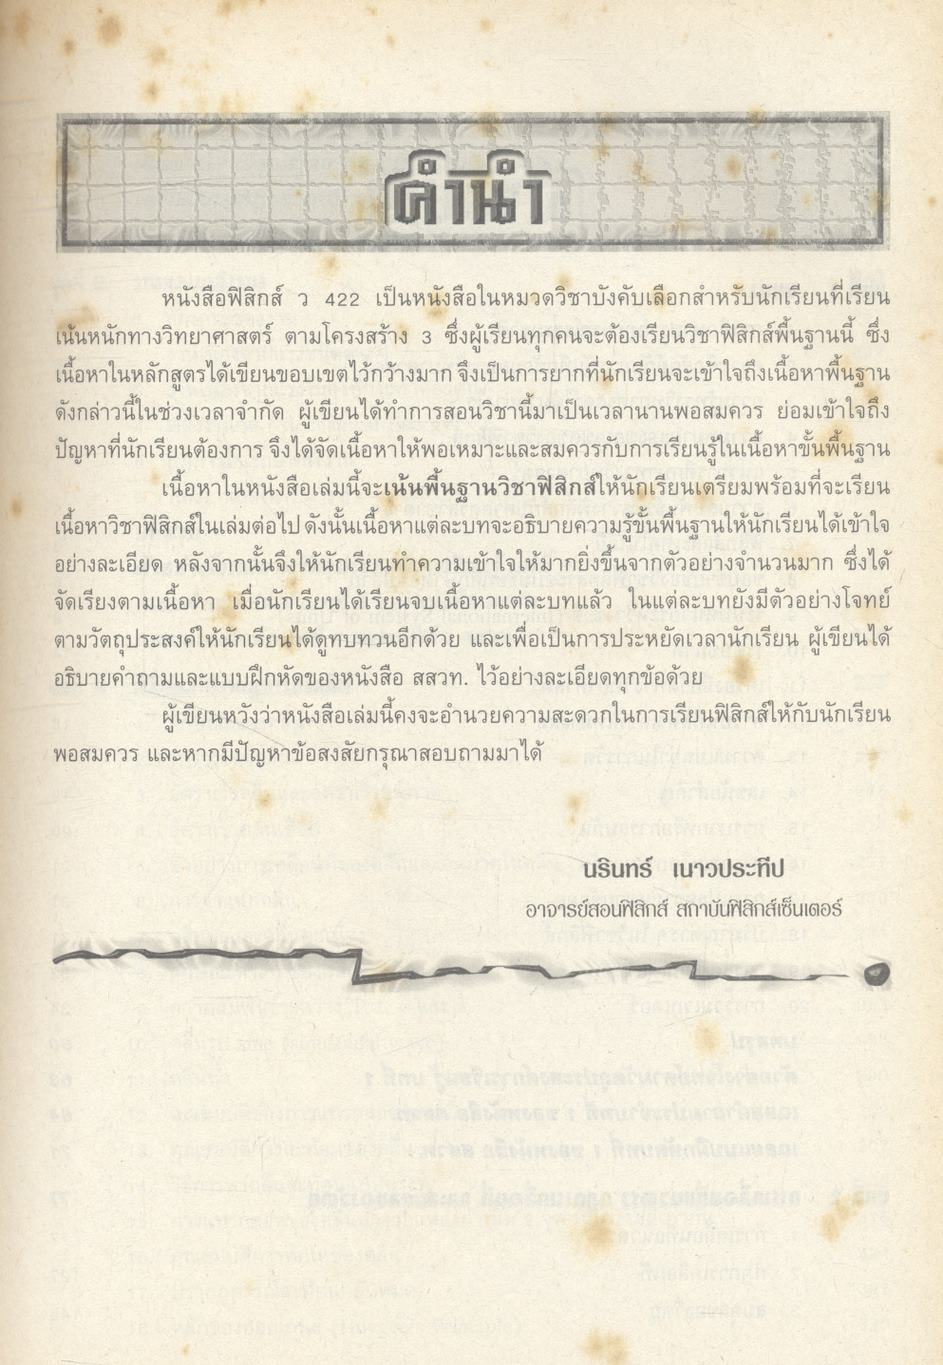 คำนำ
หนังสือฟิสิกส์ ว 422 เป็นหนังสือในหมวดวิชาบังคับเลือกสำหรับนักเรียนที่เรียน
เน้นหนักทางวิทยาศาสตร์ ตามโครงสร้าง 3 ซึ่งผู้เรียนทุกคนจะต้องเรียนวิชาฟิสิกส์พื้นฐานนี้ ซึ่ง
เนื้อหาในหลักสูตรได้เขียนขอบเขตไว้กว้างมาก จึงเป็นการยากที่นักเรียนจะเข้าใจถึงเนื้อหาพื้นฐาน
ดังกล่าวนี้ในช่วงเวลาจำกัด ผู้เขียนได้ทำการสอนวิชานี้มาเป็นเวลานานพอสมควร ย่อมเข้าใจถึง
ปัญหาที่นักเรียนต้องการ จึงได้จัดเนื้อหาให้พอเหมาะและสมควรกับการเรียนรู้ในเนื้อหาขั้นพื้นฐาน
เนื้อหาในหนังสือเล่มนี้จะเน้นพื้นฐานวิชาฟิสิกส์ให้นักเรียนเตรียมพร้อมที่จะเรียน
เนื้อหาวิชาฟิสิกส์ในเล่มต่อไป ดังนั้นเนื้อหาแต่ละบทจะอธิบายความรู้ขั้นพื้นฐานให้นักเรียนได้เข้าใจ
อย่างละเอียด หลังจากนั้นจึงให้นักเรียนทำความเข้าใจให้มากยิ่งขึ้นจากตัวอย่างจำนวนมาก ซึ่งได้
จัดเรียงตามเนื้อหา เมื่อนักเรียนได้เรียนจบเนื้อหาแต่ละบทแล้ว ในแต่ละบทยังมีตัวอย่างโจทย์
ตามวัตถุประสงค์ให้นักเรียนได้ดูทบทวนอีกด้วย และเพื่อเป็นการประหยัดเวลานักเรียน ผู้เขียนได้
อธิบายคำถามและแบบฝึกหัดของหนังสือ สสวท. ไว้อย่างละเอียดทุกข้อด้วย
ผู้เขียนหวังว่าหนังสือเล่มนี้คงจะอำนวยความสะดวกในการเรียนฟิสิกส์ให้กับนักเรียน
พอสมควร และหากมีปัญหาข้อสงสัยกรุณาสอบถามมาได้
นรินทร์ เนาวประทีป
อาจารย์สอนฟิสิกส์ สถาบันฟิสิกส์เซ็นเตอร์